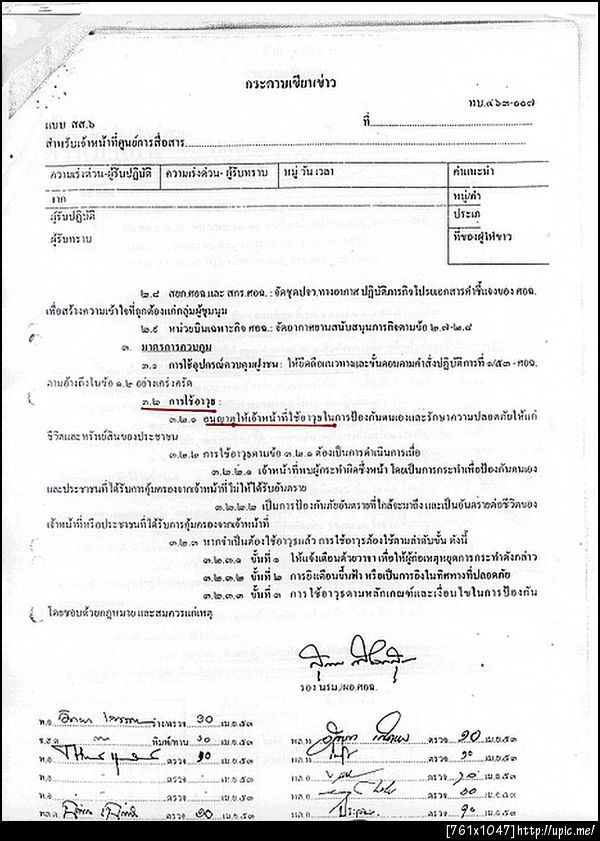 กระดาษเขียนข่าว
ทบ.๔๖๓-๐๐๗
แบบ สส.๖
ที่
สำหรับเจ้าหน้าที่ศูนย์การสื่อสาร
ความเร่งด่วน-ผู้รับปฏิบัติ ความเร่งด่วน- ผู้รับทราบ หมู่ วัน เวลา คำแนะนำ
จาก หมู่/คำ
ผู้รับปฏิบัติ ประเภท
ผู้รับทราบ ที่ของผู้ให้ข่าว
๒.๘ สยก.ศอฉ.และ สกร.ศอฉ. : จัดชุดปจว.ทางอากาศ ปฏิบัติภารกิจโปรยเอกสารคำชี้แจงของ ศอฉ.
เพื่อสร้างความเข้าใจที่ถูกต้องแก่กลุ่มผู้ชุมนุม
๒.๙ หน่วยบินเฉพาะกิจ ศอฉ.: จัดอากาศยานสนับสนุนภารกิจตามข้อ ๒.๗-๒.๘
๓. มาตรการควบคุม
๓.๑ การใช้อุปกรณ์ควบคุมฝูงชน : ให้ยึดถือแนวทางและขั้นตอนตามคำสั่งปฏิบัติการที่ ๑/๕๓ - ศอฉ.
ตามอ้างถึงในข้อ ๑.๒ อย่างเคร่งครัด
๓.๒ การใช้อาวุธ :
๓.๒.๑ อนุญาตให้เจ้าหน้าที่ใช้อาวุธในการป้องกันตนเองและรักษาความปลอดภัยให้แก่
ชีวิตและทรัพย์สินของประชาชน
๓.๒.๒ การใช้อาวุธตามข้อ ๓.๒.๑ ต้องเป็นการดำเนินการเมื่อ
๓.๒.๒.๑ เจ้าหน้าที่พบผู้กระทำผิดซึ่งหน้า โดยเป็นการกระทำเพื่อป้องกันตนเอง
และประชาชนที่ได้รับการคุ้มครองจากเจ้าหน้าที่ไม่ให้ได้รับอันตราย
๓.๒.๒.๒ เป็นการป้องกันภัยอันตรายที่ใกล้จะมาถึง และเป็นอันตรายต่อชีวิตของ
เจ้าหน้าที่หรือประชาชนที่ได้รับการคุ้มครองจากเจ้าหน้าที่
๓.๒.๓ หากจำเป็นต้องใช้อาวุธแล้ว การใช้อาวุธต้องใช้ตามลำดับขั้น ดังนี้
๓.๒.๓.๑ ขั้นที่ ๑ ให้แจ้งเตือนด้วยวาจา เพื่อให้ผู้ก่อเหตุหยุดการกระทำดังกล่าว
๓.๒.๓.๒ ขั้นที่ ๒ การยิงเตือนขึ้นฟ้า หรือเป็นการยิงในทิศทางที่ปลอดภัย
๓.๒.๓.๓ ขั้นที่ ๓ การใช้อาวุธตามหลักเกณฑ์และเงื่อนไขในการป้องกัน
โดยชอบด้วยกฎหมาย และสมควรแก่เหตุ
รอง นรม./ผอ.ศอฉ.
พ.อ. ร่าง/ตรวจ ๑๐ เม.ย.๕๓
จ.ส.ต. พิมพ์/ทาน ๑๐ เม.ย.๕๓ พล.ท. ตรวจ ๑๐ เม.ย.๕๓
พ.อ. ตรวจ ๑๐ เม.ย.๕๓ พล.ท. ตรวจ ๑๐ เม.ย.๕๓
พ.อ. ตรวจ เม.ย.๕๓ พล.อ. ตรวจ ๑๐ เม.ย.๕๓
พ.อ. ตรวจ เม.ย.๕๓ พล.อ. ตรวจ ๑๐ เม.ย.๕๓
พล.ต. ตรวจ ๑๐ เม.ย.๕๓ พล.อ. ตรวจ ๑๐ เม.ย.๕๓
[761x1047]http://upic.me/